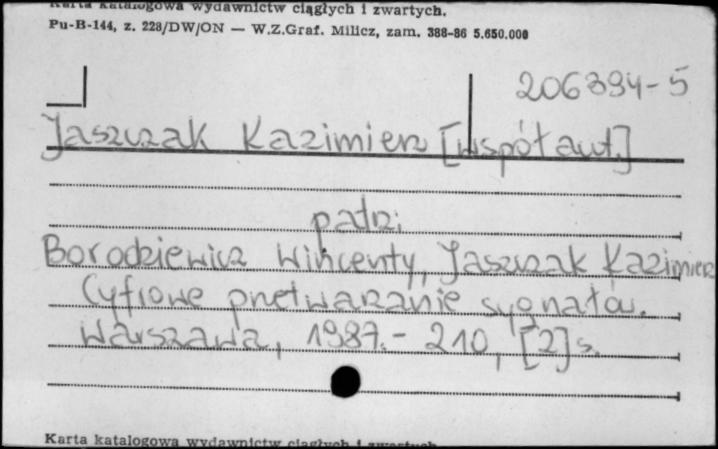 Karta katalogowa wydawnictw ciągłych i zwartych.
Pu-B-144, z. 228/DW/ON — W.Z.Graf. Milicz, zam. 388-86 5.650.000
206394-5
Jaszczak Kazimierz [współaut.]
patrz:
Borodziewicz Wincenty, Jaszczak Kazimierz
Cyfrowe przetwarzanie sygnałów.
Warszawa, 1987.- 210, [2] s.
Karta katalogowa wydawnictw ciągłych i zwartych